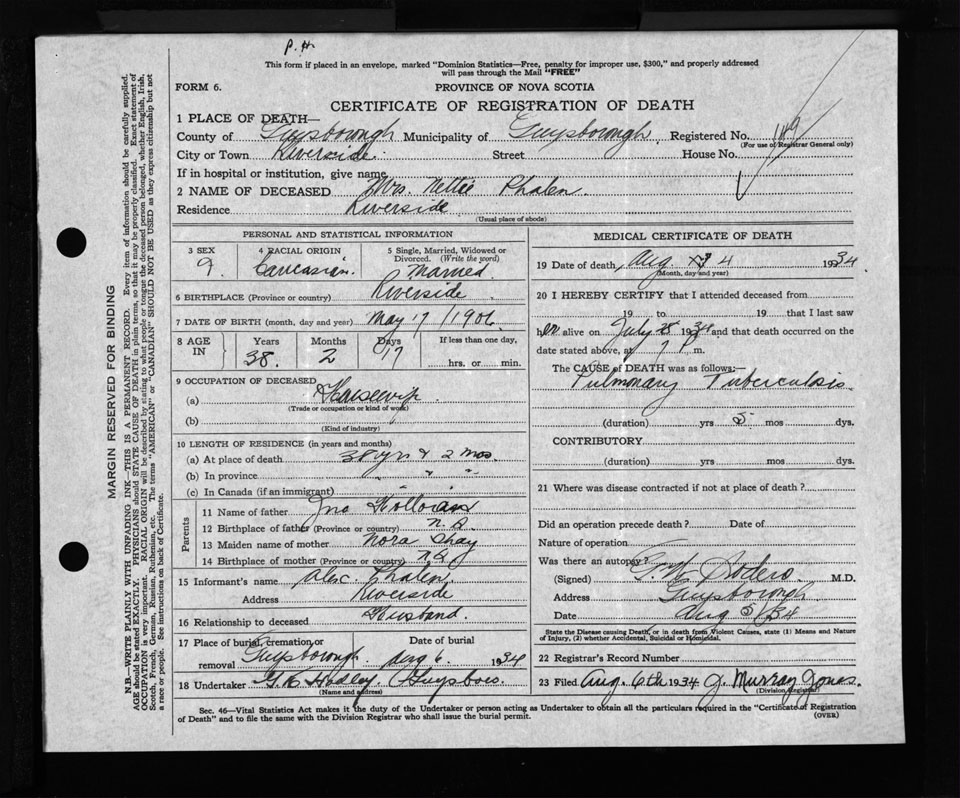 P. H.
This form if placed in an envelope, marked "Dominion Statistics—Free, penalty for improper use, $300," and properly addressed
will pass through the Mail "FREE"
FORM 6.
PROVINCE OF NOVA SCOTIA
CERTIFICATE OF REGISTRATION OF DEATH
1 PLACE OF DEATH—
County of Guysborough Municipality of Guysborough Registered No.
(For use of Registrar General only)
City or Town Riverside Street House No.
If in hospital or institution, give name
2 NAME OF DECEASED Mrs. Nettie Phalen
Residence Riverside
(Usual place of abode)
PERSONAL AND STATISTICAL INFORMATION
3 SEX 4 RACIAL ORIGIN 5 Single, Married, Widowed or Divorced. (Write the word)
F. Caucasian. Married.
6 BIRTHPLACE (Province or country) Riverside
7 DATE OF BIRTH (month, day and year) May 17 / 1906
8 AGE IN Years Months Days If less than one day,
38. 2 17 hrs. or min.
9 OCCUPATION OF DECEASED
(a) Housewife
(Trade or occupation or kind of work)
(b)
(Kind of industry)
10 LENGTH OF RESIDENCE (in years and months)
(a) At place of death 38 yrs & 2 mos.
(b) In province " "
(c) In Canada (if an immigrant)
Parents
11 Name of father Jno
12 Birthplace of father (Province or country) N. S.
13 Maiden name of mother Nora Shay
14 Birthplace of mother (Province or country) N S
15 Informant's name Alex. Phalen
Address Riverside
16 Relationship to deceased Husband.
17 Place of burial, cremation, or removal Guysborough. Date of burial Aug 6. 1934
18 Undertaker Hadley Guysboro.
(Name and address)
MEDICAL CERTIFICATE OF DEATH
19 Date of death Aug 4 1934.
(Month, day and year)
20 I HEREBY CERTIFY that I attended deceased from
19 to 19 that I last saw
her alive on July 28 1934 and that death occurred on the
date stated above, at 7 P. m.
The CAUSE of DEATH was as follows:—
Pulmonary Tuberculosis
(duration) yrs 5 mos dys.
CONTRIBUTORY
(duration) yrs mos dys.
21 Where was disease contracted if not at place of death?
Did an operation precede death? Date of
Nature of operation
Was there an autopsy?
(Signed) Sodero. M.D.
Address Guysborough
Date Aug 5/34
State the Disease causing Death, or in death from Violent Causes, state (1) Means and Nature
of Injury, (2) whether Accidental, Suicidal or Homicidal.
22 Registrar's Record Number
23 Filed Aug. 6th 1934 J. Murray Jones.
(Division Registrar)
Sec. 46—Vital Statistics Act makes it the duty of the Undertaker or person acting as Undertaker to obtain all the particulars required in the "Certificate of Registration
of Death" and to file the same with the Division Registrar who shall issue the burial permit.
(OVER)
MARGIN RESERVED FOR BINDING
N.B.—WRITE PLAINLY WITH UNFADING INK—THIS IS A PERMANENT RECORD. Every item of information should be carefully supplied.
AGE should be stated EXACTLY. PHYSICIANS should STATE CAUSE OF DEATH in plain terms, so that it may be properly classified. Exact statement of
OCCUPATION is very important. RACIAL ORIGIN will be described by stating to what people or tongue the deceased person belonged, whether English, Irish,
Scotch, French, German, Russian, Ruthenian, etc. The terms "AMERICAN" or "CANADIAN" SHOULD NOT BE USED as they express citizenship but not
a race or people. See instructions on back of Certificate.